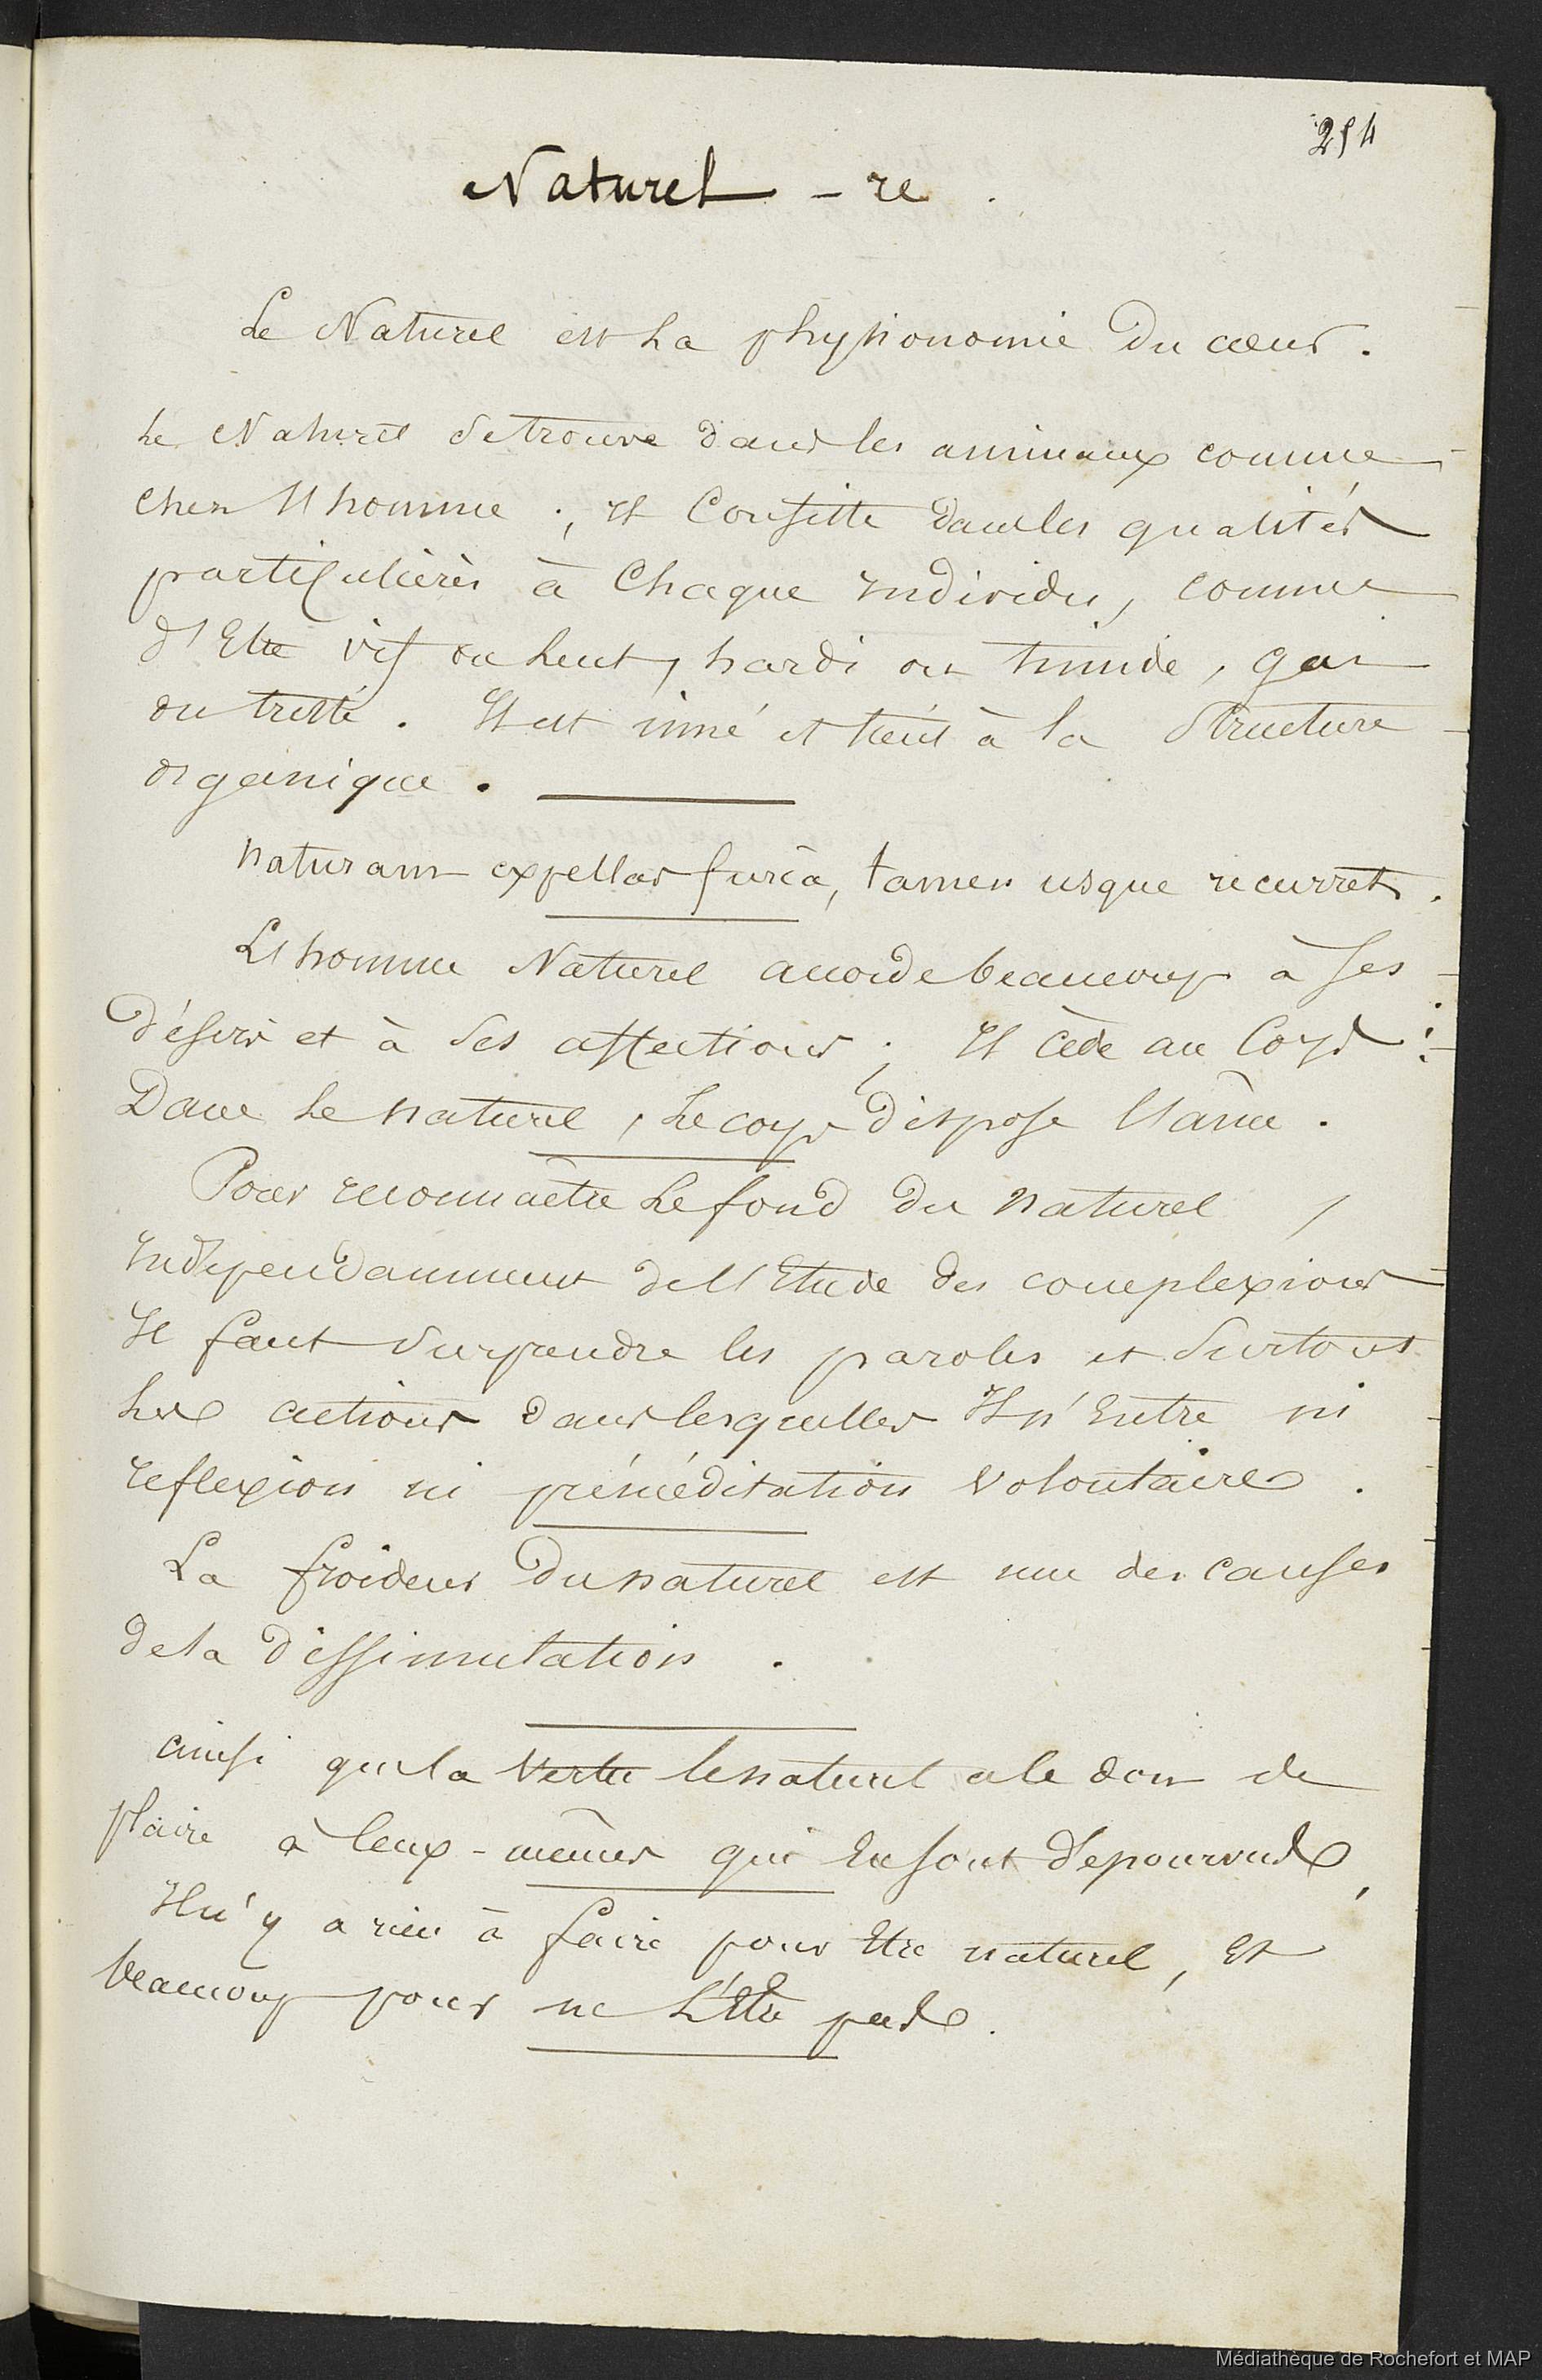 254
Naturel - re .
Le Naturel est la physionomie du cœur .
Le Naturel se trouve dans les animaux comme
chez l'homme ; il Consiste dans les qualités
particulières à Chaque individu, comme
d'Etre vif ou lent, hardi ou timide, gai
ou triste . Il est inné et tient à la Structure
organique .
naturam expellas furcâ, tamen usque recurret .
L'homme Naturel accorde beaucoup à ses
désirs et à ses affections ; Il cède au Corps :
Dans le naturel, le corps dispose l'âme .
Pour reconnaître le fond du naturel ,
indépendamment de l'Etude des complexions
Il faut surprendre les paroles et surtout
les actions dans lesquelles Il n'Entre ni
reflexion ni préméditation volontaire .
La froideur du naturel est une des causes
de la dissimulation .
ainsi que la vertu le naturel a le don de
plaire à Ceux-mêmes qui En sont dépourvus ,
Il n'y a rien à faire pour Etre naturel, Et
beaucoup pour ne l'Etre pas .
Médiathèque de Rochefort et MAP